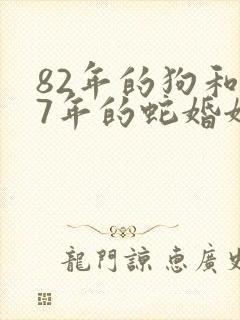 82年的狗和
7年的蛇婚姻
龍門諒惠廣